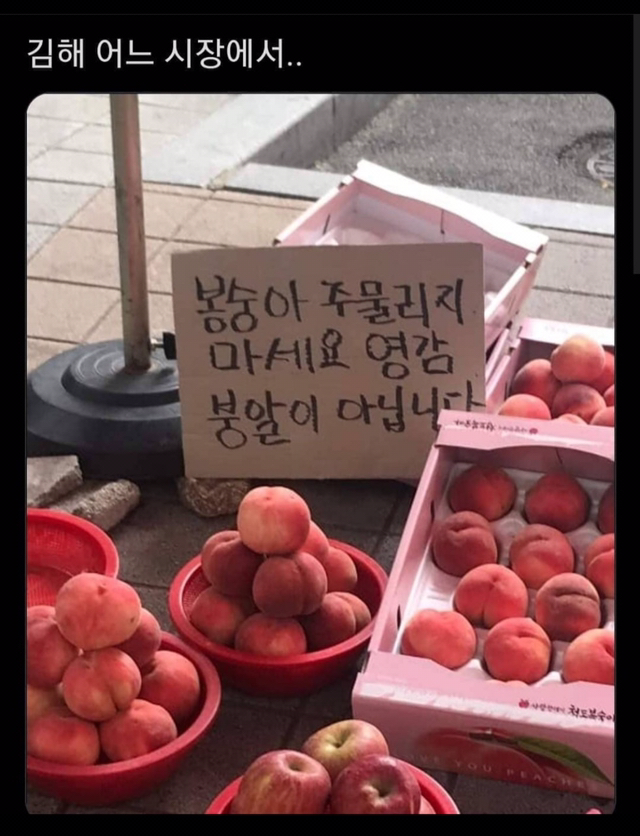 김해 어느 시장에서..
봉숭아 주물리지
마세요 영감
붕알이 아닙니다
YOU PEACH